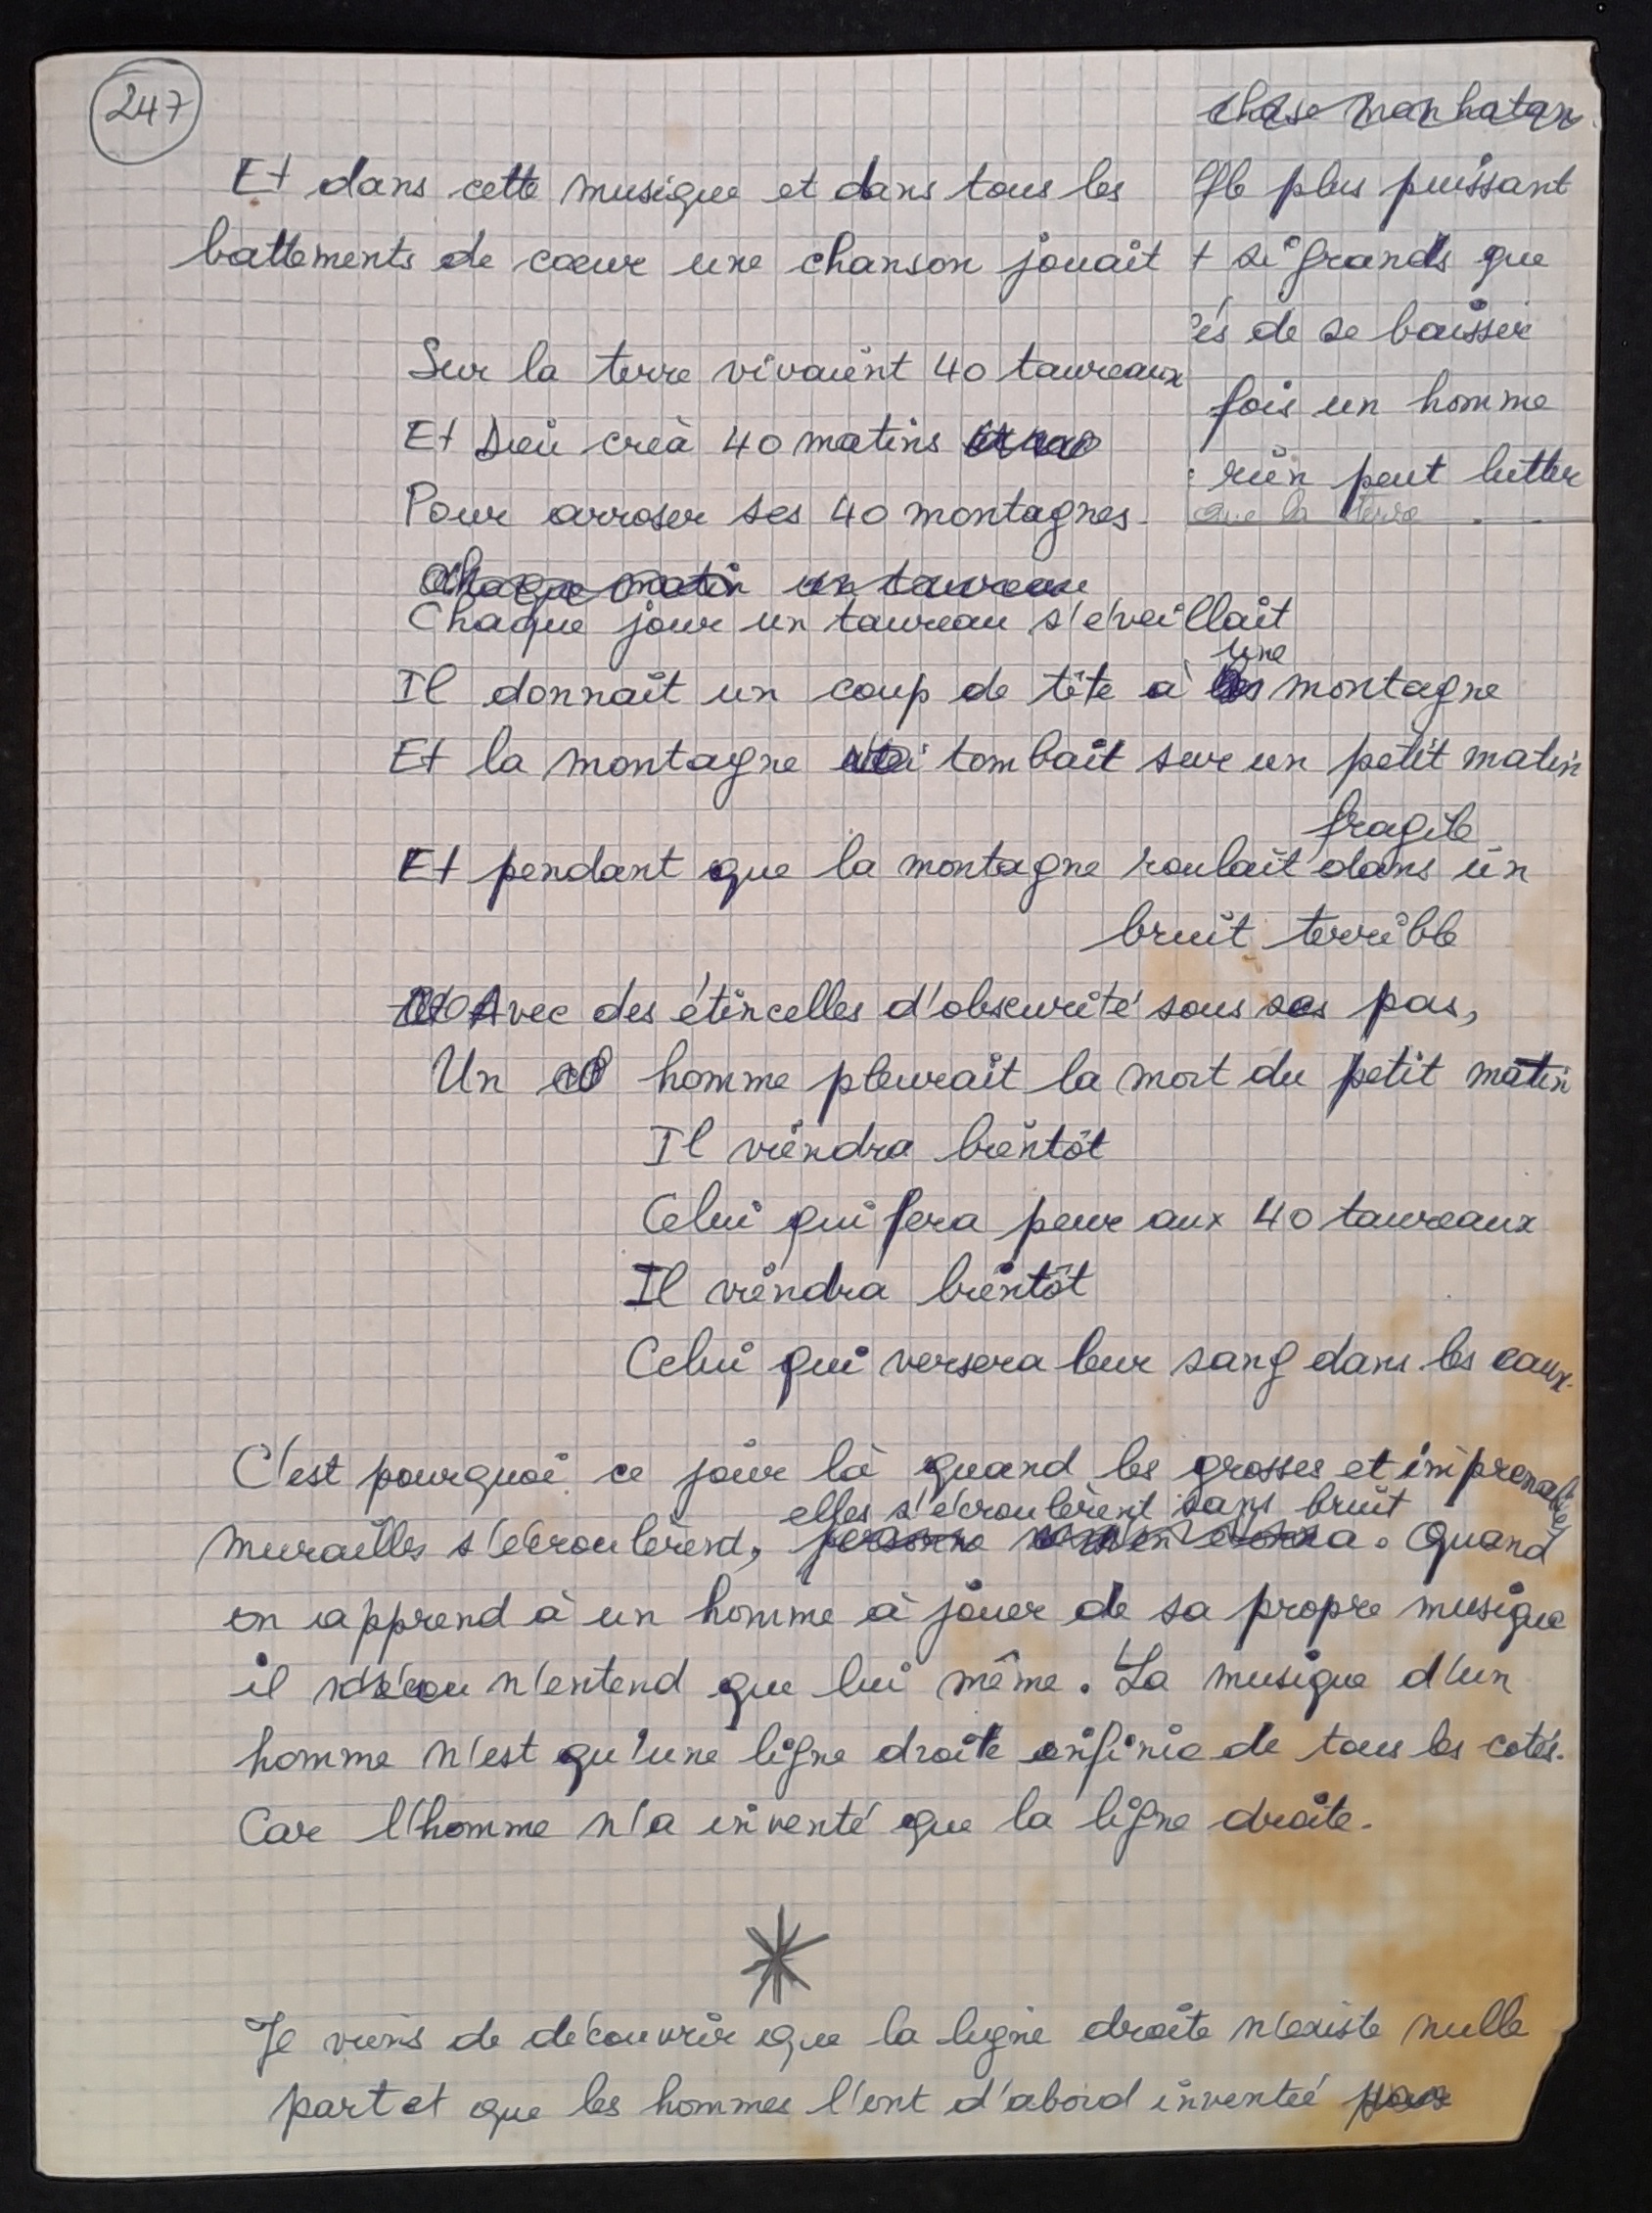 247
chase manhatan.
Et dans cette musique et dans tous les
battements de cœur une chanson jouait
plus puissant
si grands que
és de se baisser
fois un homme
rien peut lutter
que la terre
Sur la terre vivaient 40 taureaux
Et Dieu créa 40 matins
Pour arroser ses 40 montagnes.
Chaque matin un taureau
Chaque jour un taureau s'éveillait
une
Il donnait un coup de tête à les montagne
Et la montagne tombait sur un petit matin
fragile
Et pendant que la montagne roulait dans un
bruit terrible
Avec des étincelles d'obscurité sous ses pas,
Un homme pleurait la mort du petit matin
Il viendra bientôt
Celui qui fera peur aux 40 taureaux
Il viendra bientôt
Celui qui versera leur sang dans les eaux.
C'est pourquoi ce jour là quand les grosses et imprenables
elles s'écroulèrent sans bruit
murailles s'écroulèrend, personne s'en étonna. Quand
on apprend à un homme à jouer de sa propre musique
il n'entend que lui même. La musique d'un
homme n'est qu'une ligne droite infinie de tous les cotés.
Car l'homme n'a inventé que la ligne droite.
Je viens de découvrir que la ligne droite n'existe nulle
part et que les hommes l'ont d'abord inventée pour